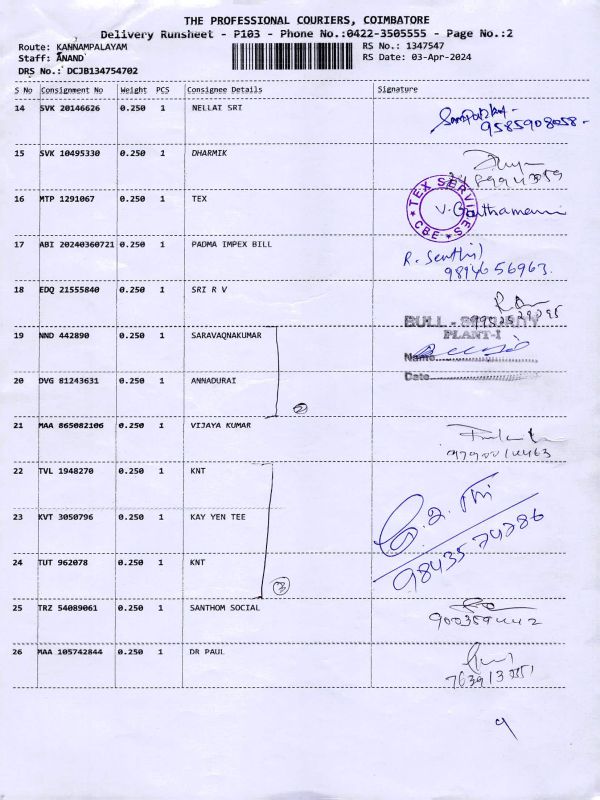 THE PROFESSIONAL COURIERS, COIMBATORE
Delivery Runsheet - P103 - Phone No.:0422-3505555 - Page No.:2
Route: KANNAMPALAYAM
RS No.: 1347547
Staff: ANAND
RS Date: 03-Apr-2024
DRS No.: DCJB134754702
S No Consignment No Weight PCS Consignee Details Signature
14 SVK 20146626 0.250 1 NELLAT SRT
9585908058-
15 SVK 10495330 0.250 1 DHARMIK
16 MTP 1291067 0.250 1 TEX
TEX SERVICES CBE
V. Gouthamani
17 ABI 20240360721 0.250 1 PADMA IMPEX BILL
R. Senthil
9894656963.
18 EDQ 21555840 0.250 1 SRI R V
BULL - 
PLANT-I
19 NND 442890 0.250 1 SARAVAQNAKUMAR
Name
20 DVG 81243631 0.250 1 ANNADURAI
Date
2
21 MAA 865082106 0.250 1 VIJAYA KUMAR
22 TVL 1948270 0.250 1 KNT
23 KVT 3050796 0.250 1 KAY YEN TEE
98435 74286
24 TUT 962078 0.250 1 KNT
3
25 TRZ 54089061 0.250 1 SANTHOM SOCIAL
26 MAA 105742844 0.250 1 DR PAUL
9